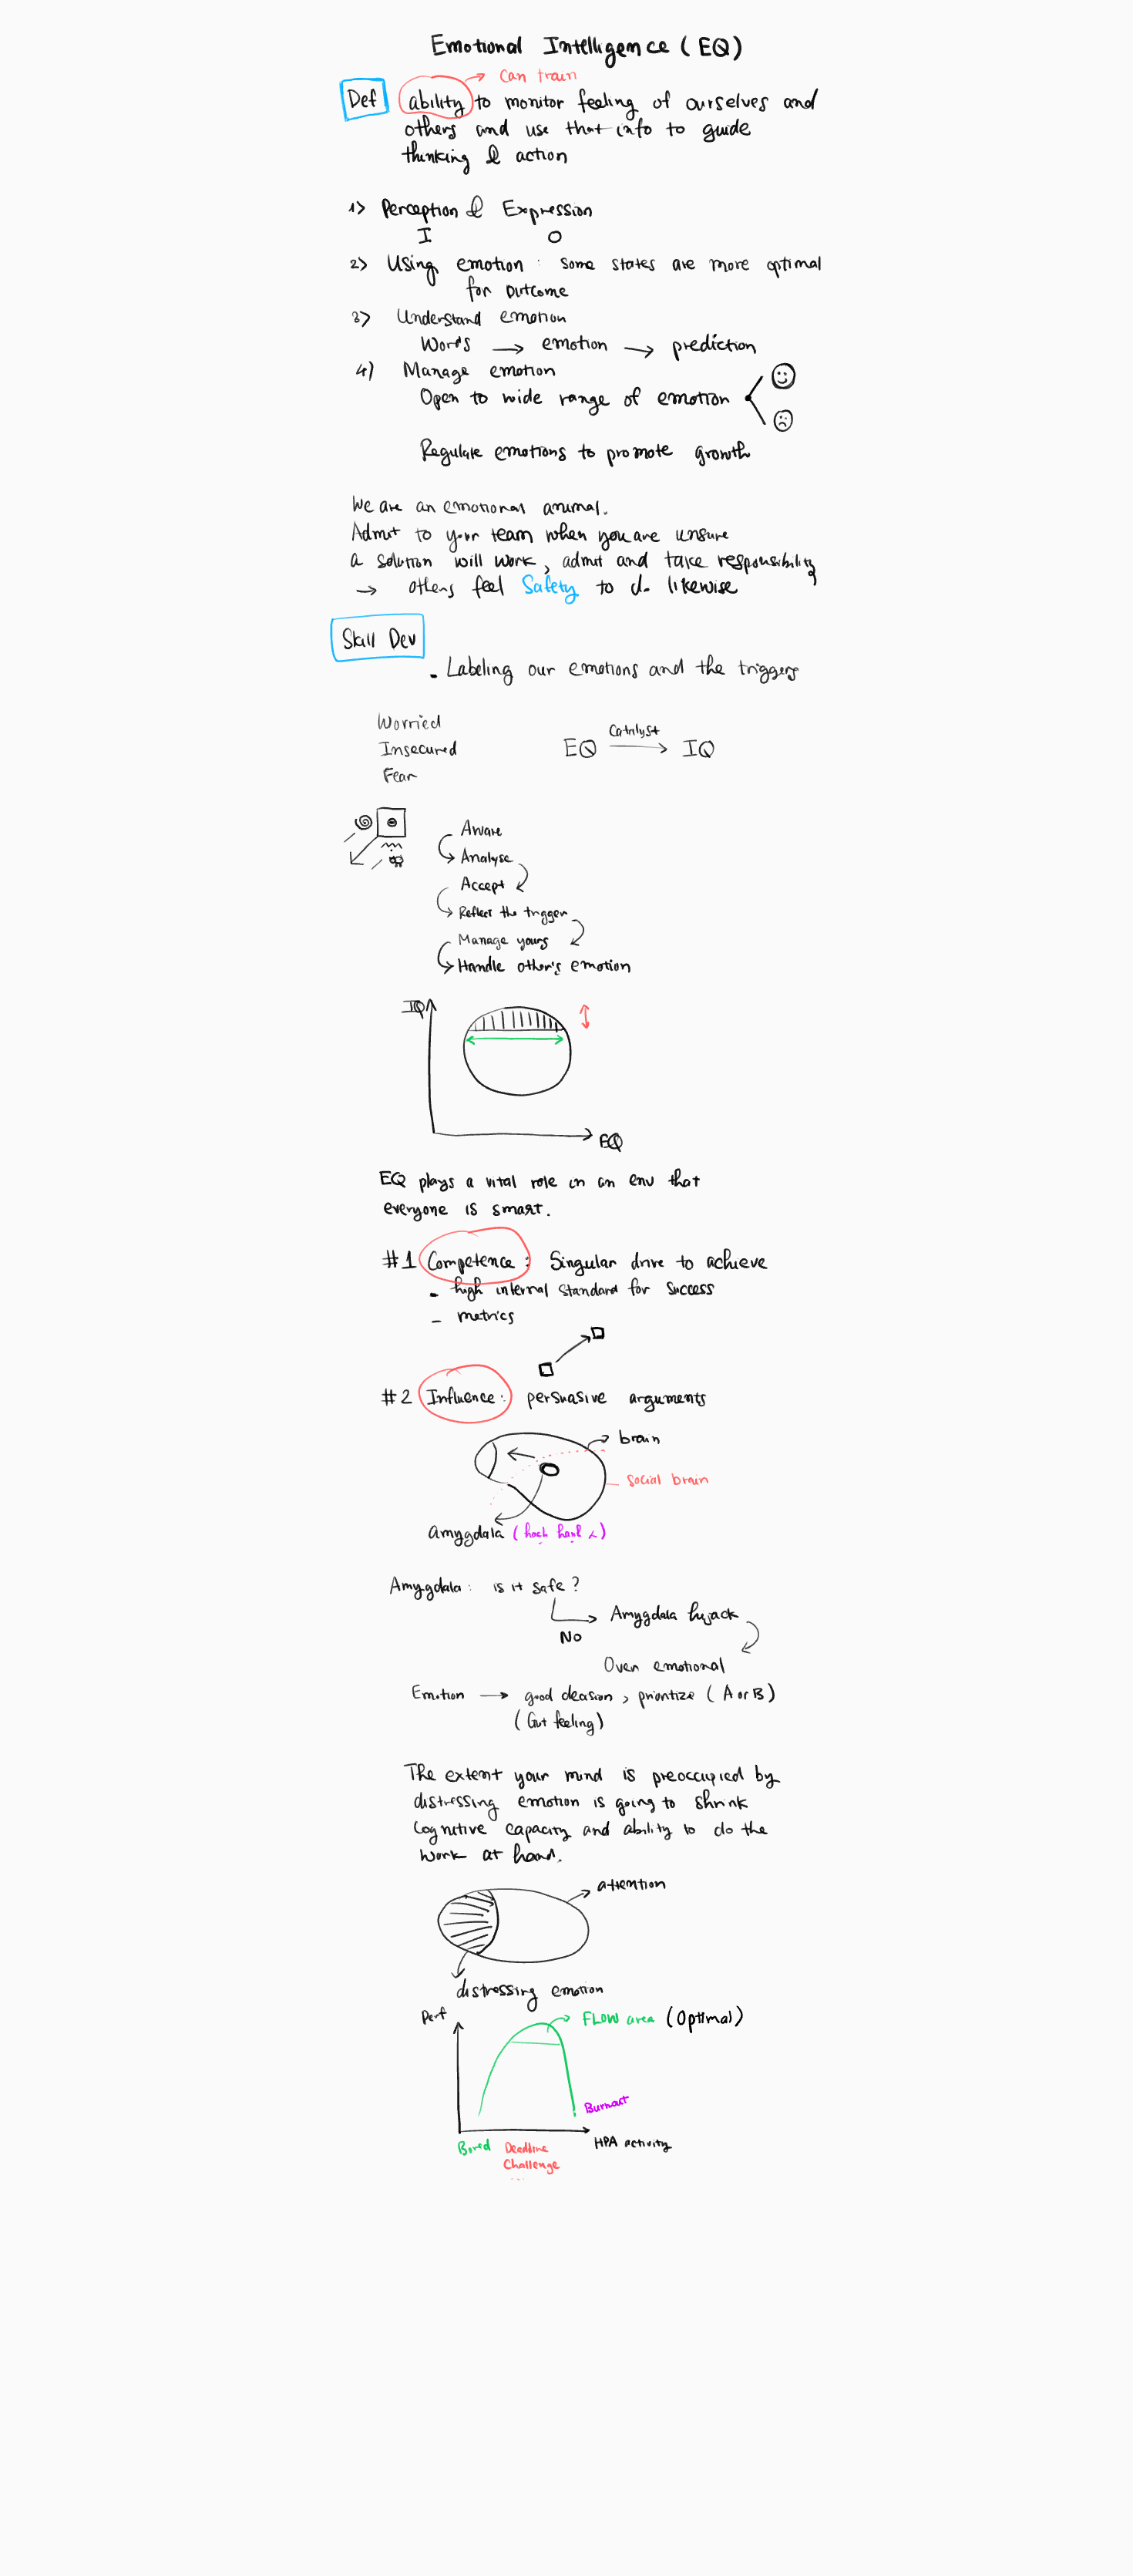 Emotional Intelligence (EQ)
can train
Def ability to monitor feeling of ourselves and
others and use that info to guide
thinking & action
1) Perception & Expression
I O
2) Using emotion : some states are more optimal
for outcome
3) Understand emotion
Words → emotion → prediction
4) Manage emotion
Open to wide range of emotion
Regulate emotions to promote growth
We are an emotional animal.
Admit to your team when you are unsure
a solution will work, admit and take responsibility
→ others feel Safety to do likewise
Skill Dev
- Labeling our emotions and the triggers
Worried
Insecured
Fear
EQ Catalyst → IQ
Aware
Analyse
Accept
Reflect the trigger
Manage yours
Handle other's emotion
IQ
EQ
EQ plays a vital role in an env that
everyone is smart.
#1 Competence : Singular drive to achieve
- high internal standard for success
- metrics
#2 Influence : persuasive arguments
brain
social brain
amygdala
Amygdala : is it safe ?
Amygdala hijack
No
Over emotional
Emotion → good decision, prioritize (A or B)
(Gut feeling)
The extent your mind is preoccupied by
distressing emotion is going to shrink
cognitive capacity and ability to do the
work at hand.
attention
distressing emotion
Perf
FLOW area (Optimal)
Burnout
HPA activity
Bored
Deadline
Challenge
...